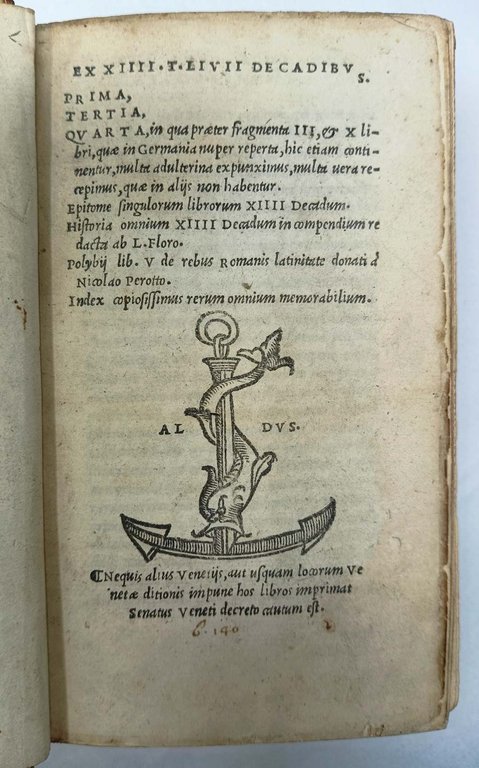 EX XIIII.T.LIVII DECADIBVS.
PRIMA,
TERTIA,
QVARTA, in qua præter fragmenta III, & X li-
bri, quæ in Germania nuper reperta, hic etiam conti-
nentur, multa adulterina expunximus, multa uera re-
cepimus, quæ in alijs non habentur.
Epitome singulorum librorum XIIII Decadum.
Historia omnium XIIII Decadum in compendium re
dacta ab L. Floro.
Polybij lib. V de rebus Romanis latinitate donati à
Nicolao Perotto.
Index copiosissimus rerum omnium memorabilium.
AL DVS.
⁋Nequis alius Venetijs, aut usquam locorum Ve
netæ ditionis impune hos libros imprimat
Senatus Veneti decreto cautum est.
6. 140